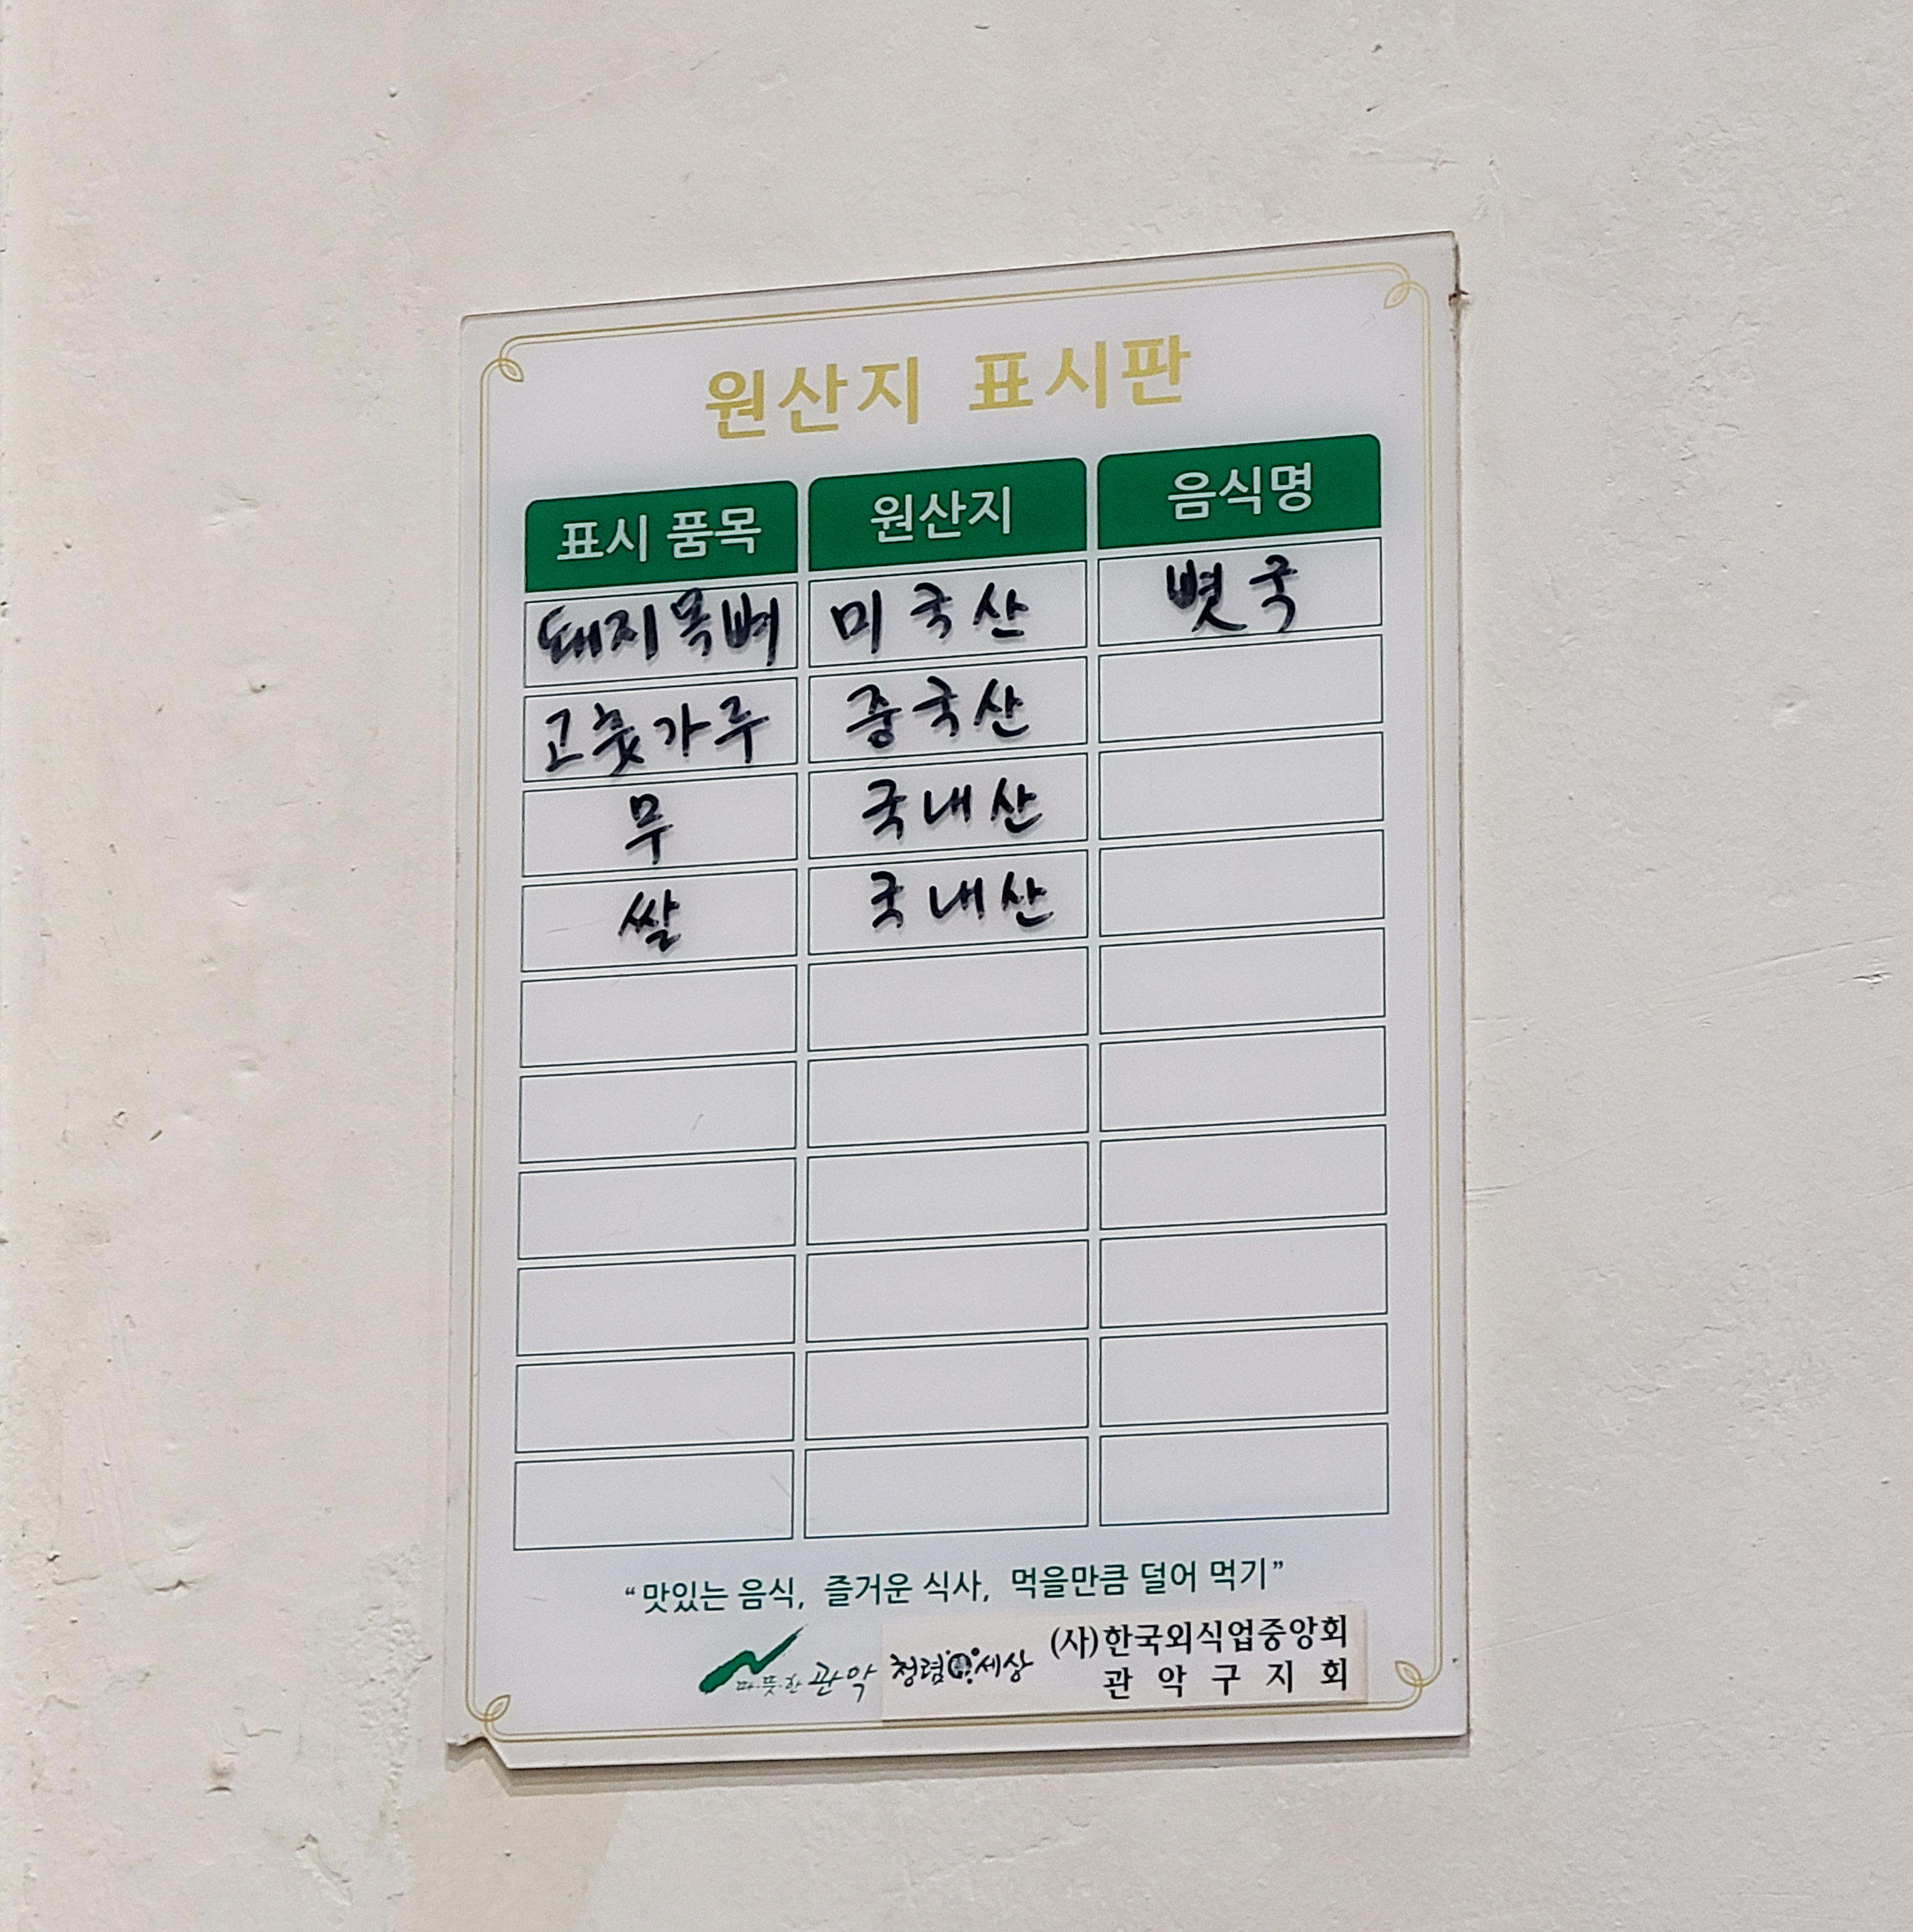 원산지 표시판
표시 품목 원산지 음식명
돼지목뼈 미국산 뼛국
고춧가루 중국산
무 국내산
쌀 국내산
“맛있는 음식, 즐거운 식사, 먹을만큼 덜어 먹기”
따·뜻·한 관악 청렴 세상 (사)한국외식업중앙회
관악구지회